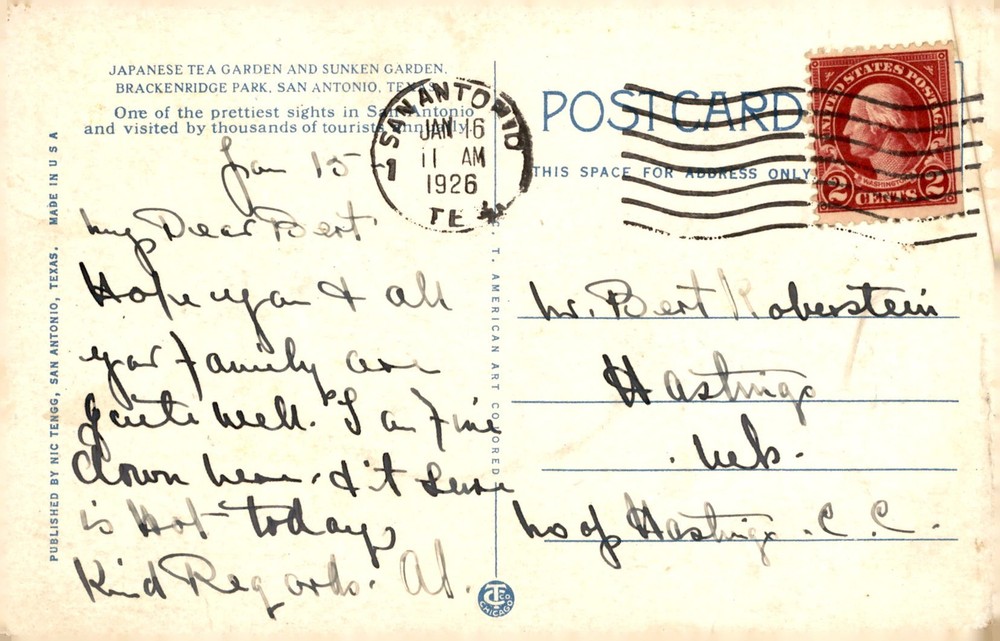 JAPANESE TEA GARDEN AND SUNKEN GARDEN,
BRACKENRIDGE PARK, SAN ANTONIO, TEXAS.
One of the prettiest sights in San Antonio
and visited by thousands of tourists annually.
Jan 15
My Dear Bert
Hope you & all
your family are
quite well. I am fine
down here. & it sure
is Hot today
Kind Regards. Al.
PUBLISHED BY NIC TENGG, SAN ANTONIO, TEXAS. MADE IN U S A
C. T. AMERICAN ART COLORED
CHICAGO
SAN ANTONIO
JAN 16
11 AM
1926
TEX
1
POST CARD
THIS SPACE FOR ADDRESS ONLY
UNITED STATES POSTAGE
WASHINGTON
2 CENTS 2
Mr. Bert Koberstein
Hastings
Neb.
℅ Hastings. C. C.